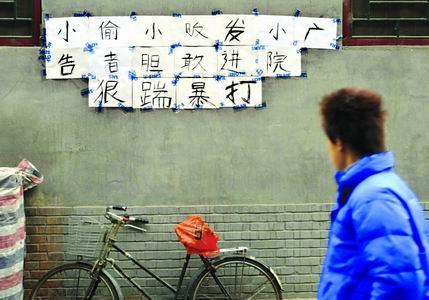 小偷小收发小广
告者胆敢进院
狠踹暴打